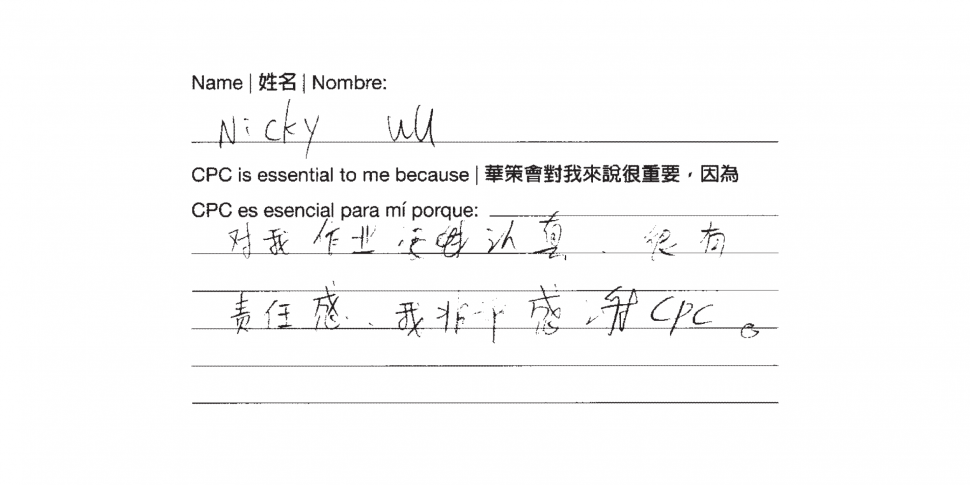 Name | 姓名 | Nombre:
Nicky Wu
CPC is essential to me because | 華策會對我來說很重要，因為
CPC es esencial para mí porque:
对我作业 认真、很有
责任感、我非 感谢CPC。